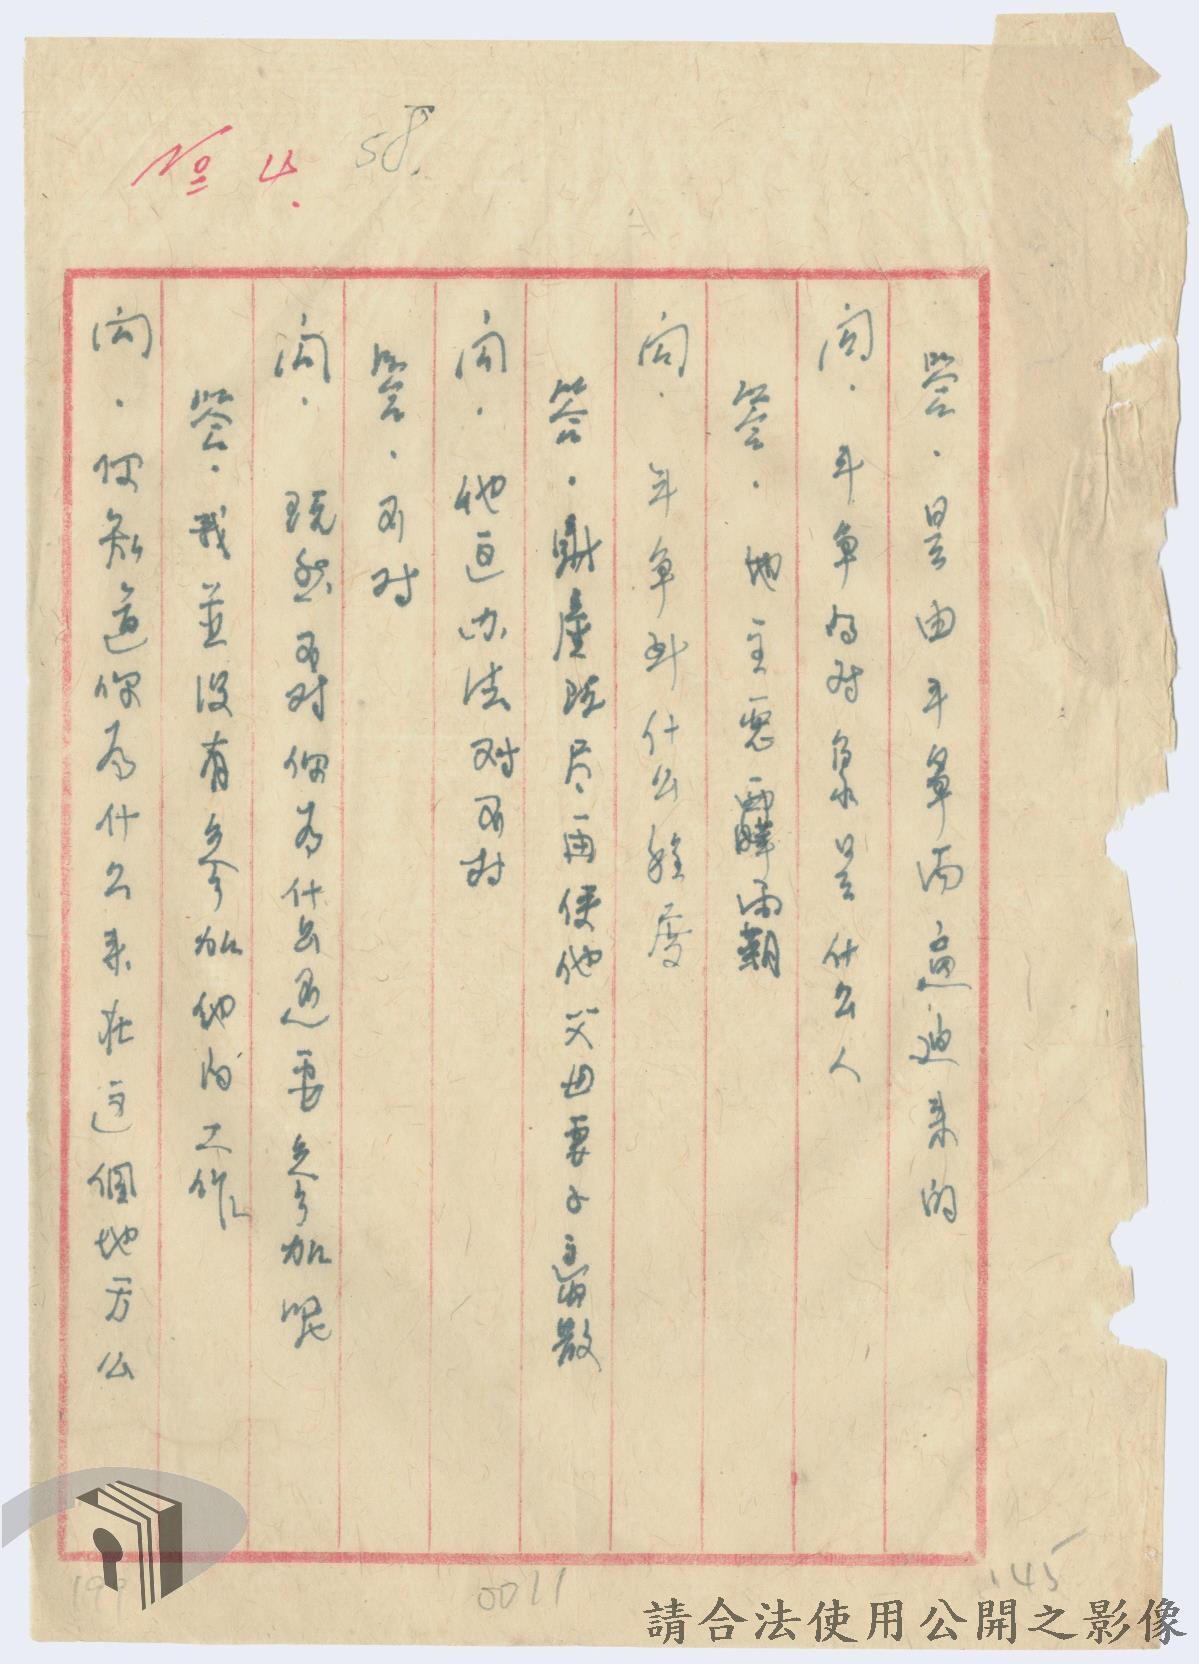 № 4.
58.
答．是由斗争而逼迫来的
问．斗争的对象是什么人
答．地主惡霸
问．斗争到什么程度
答．財產既尽再使他父母妻子逃散
问．他这办法对不对
答．不对
问．既然不对你为什么还要参加呢
答．我並没有参加他的工作
问．你知道你为什么来在这個地方么
0011
145
請合法使用公開之影像